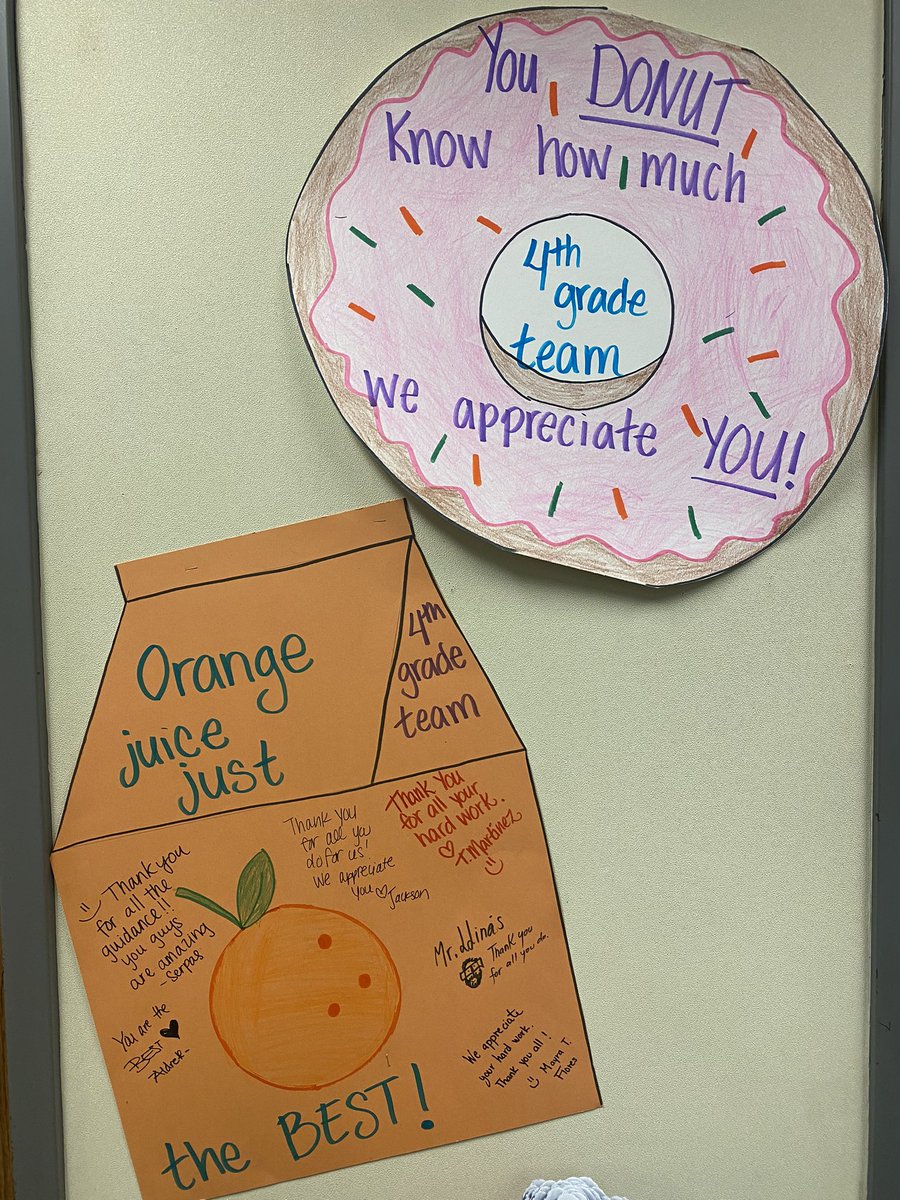 You DONUT
Know how much
4th
grade
team
We appreciate YOU!
Orange
juice
just
4th
grade
team
Thank you
for all the
guidance!!
you guys
are amazing
-Serpas
Thank you
for all you
do for us!
We appreciate
you Jackson
Thank you
for all your
hard work.
T. Martinez
You are the
BEST
Mr.
Thank you
for all you do.
We appreciate
your hard work.
Thank you all!
Mayra T.
Flores
the BEST!